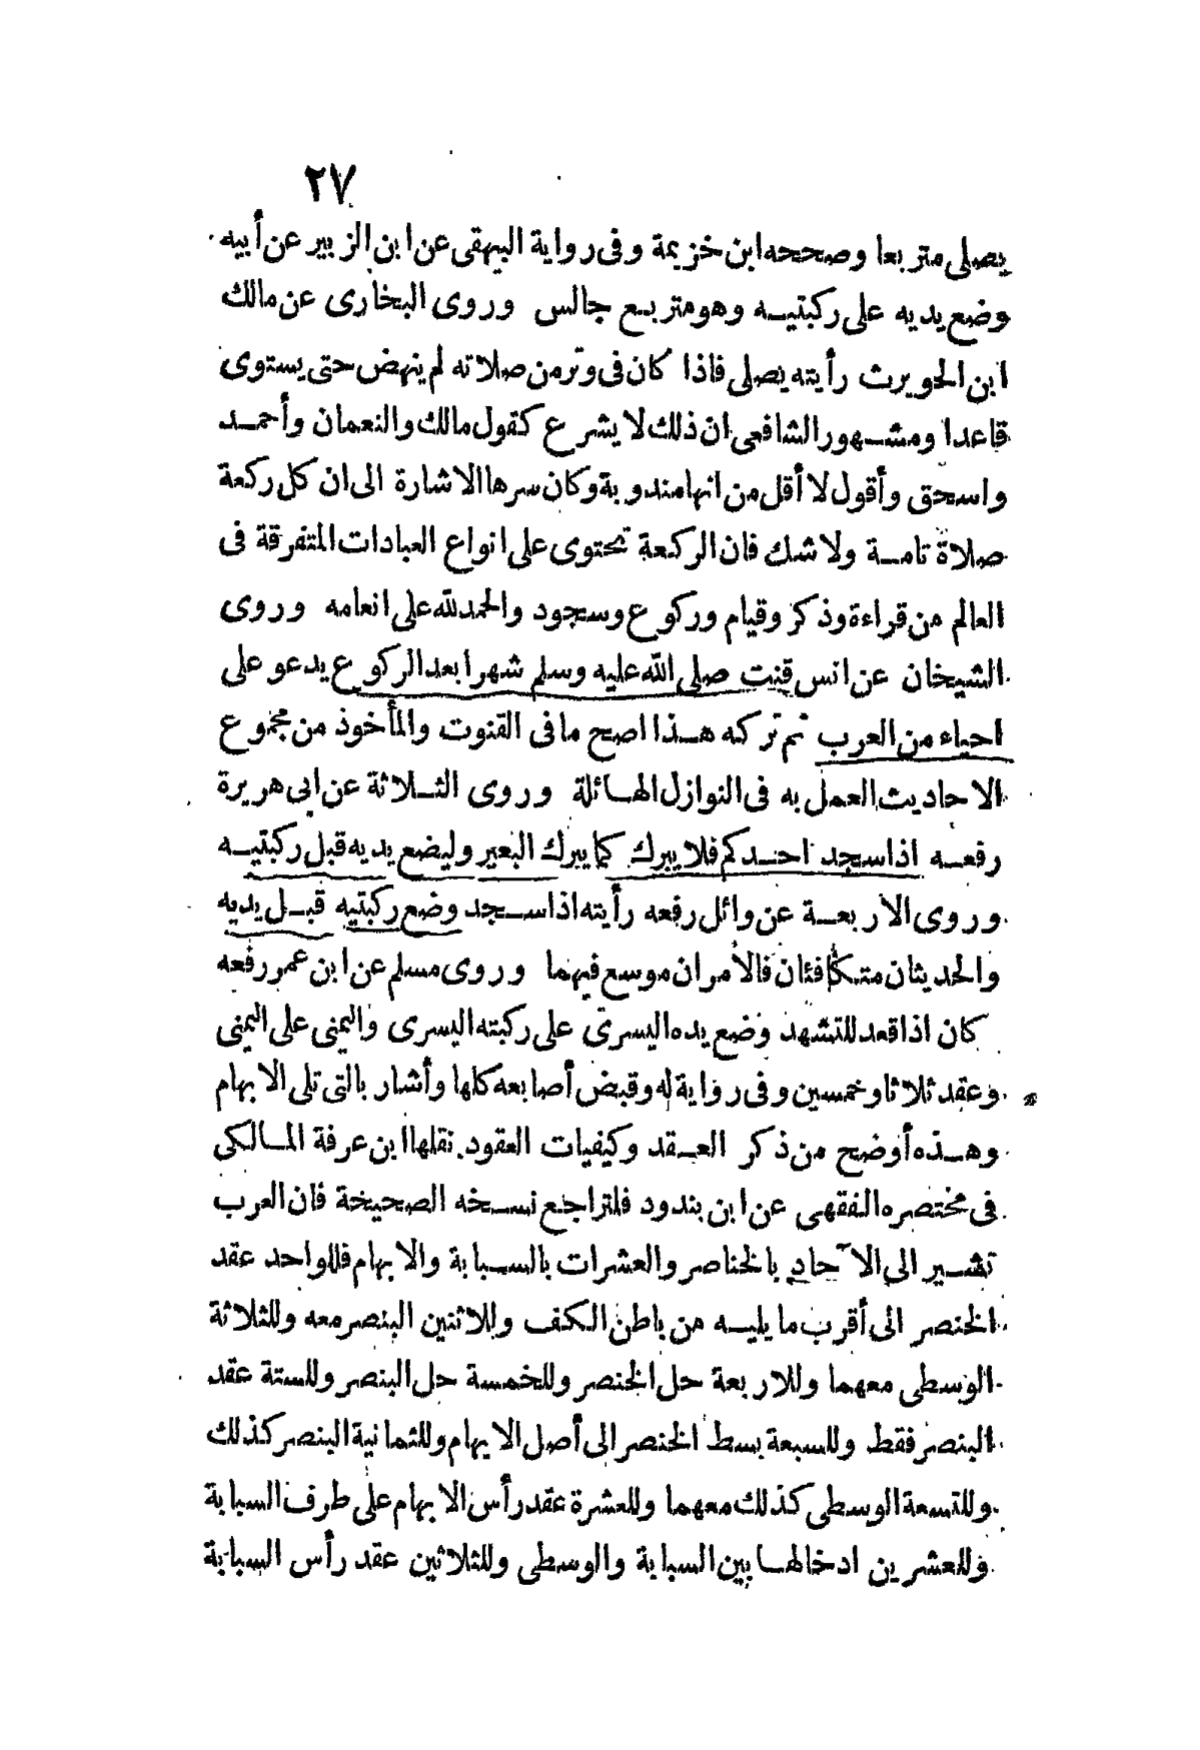 ٢٧
يصلى متربعا وصححه ابن خزيمة وفى رواية البيهقى عن ابن الزبير عن أبيه
وضع يديه على ركبتيه وهو متربع جالس وروى البخارى عن مالك
ابن الحويرث رأيته يصلى فاذا كان فى وتر من صلاته لم ينهض حتى يستوى
قاعدا ومشهور الشافعى ان ذلك لا يشرع كقول مالك والنعمان وأحمد
واسحق وأقول لا أقل من انها مندوبة وكان سرها الاشارة الى ان كل ركعة
صلاة تامة ولا شك فان الركعة تحتوى على انواع العبادات المتفرقة فى
العالم من قراءة وذكر وقيام وركوع وسجود والحمد لله على انعامه وروى
الشيخان عن انس قنت صلى الله عليه وسلم شهرا بعد الركوع يدعو على
احياء من العرب ثم تركه هذا اصح ما فى القنوت والمأخوذ من مجموع
الاحاديث العمل به فى النوازل الهائلة وروى الثلاثة عن ابى هريرة
رفعه اذا سجد احدكم فلا يبرك كما يبرك البعير وليضع يديه قبل ركبتيه
وروى الاربعة عن وائل رفعه رأيته اذا سجد وضع ركبتيه قبل يديه
والحديثان متكافئان فالأمران موسع فيهما وروى مسلم عن ابن عمر رفعه
كان اذا قعد للتشهد وضع يده اليسرى على ركبته اليسرى واليمنى على اليمنى
وعقد ثلاثا وخمسين وفى رواية له وقبض أصابعه كلها وأشار بالتى تلى الابهام
وهذه أوضح من ذكر العقد وكيفيات العقود نقلها ابن عرفة المالكى
فى مختصره الفقهى عن ابن بندود فلتراجع نسخه الصحيحة فان العرب
تشير الى الآحاد بالخناصر والعشرات بالسبابة والابهام فللواحد عقد
الخنصر الى أقرب ما يليه من باطن الكف وللاثنين البنصر معه وللثلاثة
الوسطى معهما وللاربعة حل الخنصر وللخمسة حل البنصر وللستة عقد
البنصر فقط وللسبعة بسط الخنصر الى أصل الابهام وللثمانية البنصر كذلك
وللتسعة الوسطى كذلك معهما وللعشرة عقد رأس الابهام على طرف السبابة
وللعشرين ادخالها بين السبابة والوسطى وللثلاثين عقد رأس السبابة